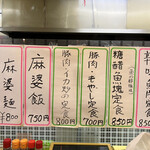 料
魚定食
850
糖醋魚塊定食
850円
豚肉・もやし定食
700円
豚肉・イカ炒め定食
800円
麻婆飯
750円
麻婆麺
¥800